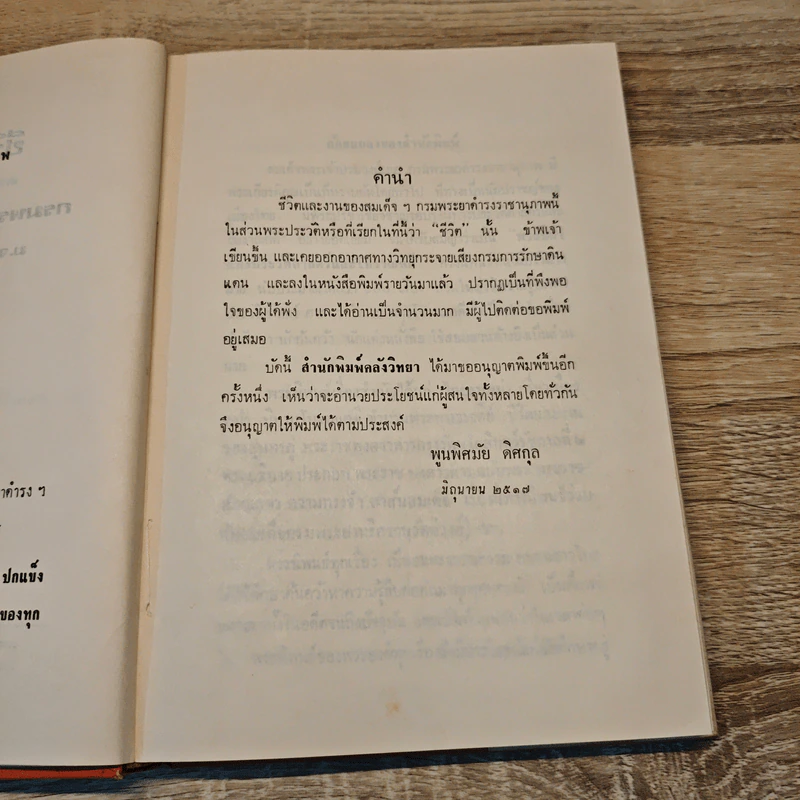 คำนำ
ชีวิตและงานของสมเด็จ ฯ กรมพระยาดำรงราชานุภาพนี้
ในส่วนพระประวัติหรือที่เรียกในที่นี้ว่า “ชีวิต” นั้น ข้าพเจ้า
เขียนขึ้น และเคยออกอากาศทางวิทยุกระจายเสียงกรมการรักษาดิน
แดน และลงในหนังสือพิมพ์รายวันมาแล้ว ปรากฏเป็นที่พึงพอ
ใจของผู้ได้ฟัง และได้อ่านเป็นจำนวนมาก มีผู้ไปติดต่อขอพิมพ์
อยู่เสมอ
บัดนี้ สำนักพิมพ์คลังวิทยา ได้มาขออนุญาตพิมพ์ขึ้นอีก
ครั้งหนึ่ง เห็นว่าจะอำนวยประโยชน์แก่ผู้สนใจทั้งหลายโดยทั่วกัน
จึงอนุญาตให้พิมพ์ได้ตามประสงค์
พูนพิศมัย ดิศกุล
มิถุนายน ๒๕๑๗
าดำรง ฯ
ปกแข็ง
ของทุก